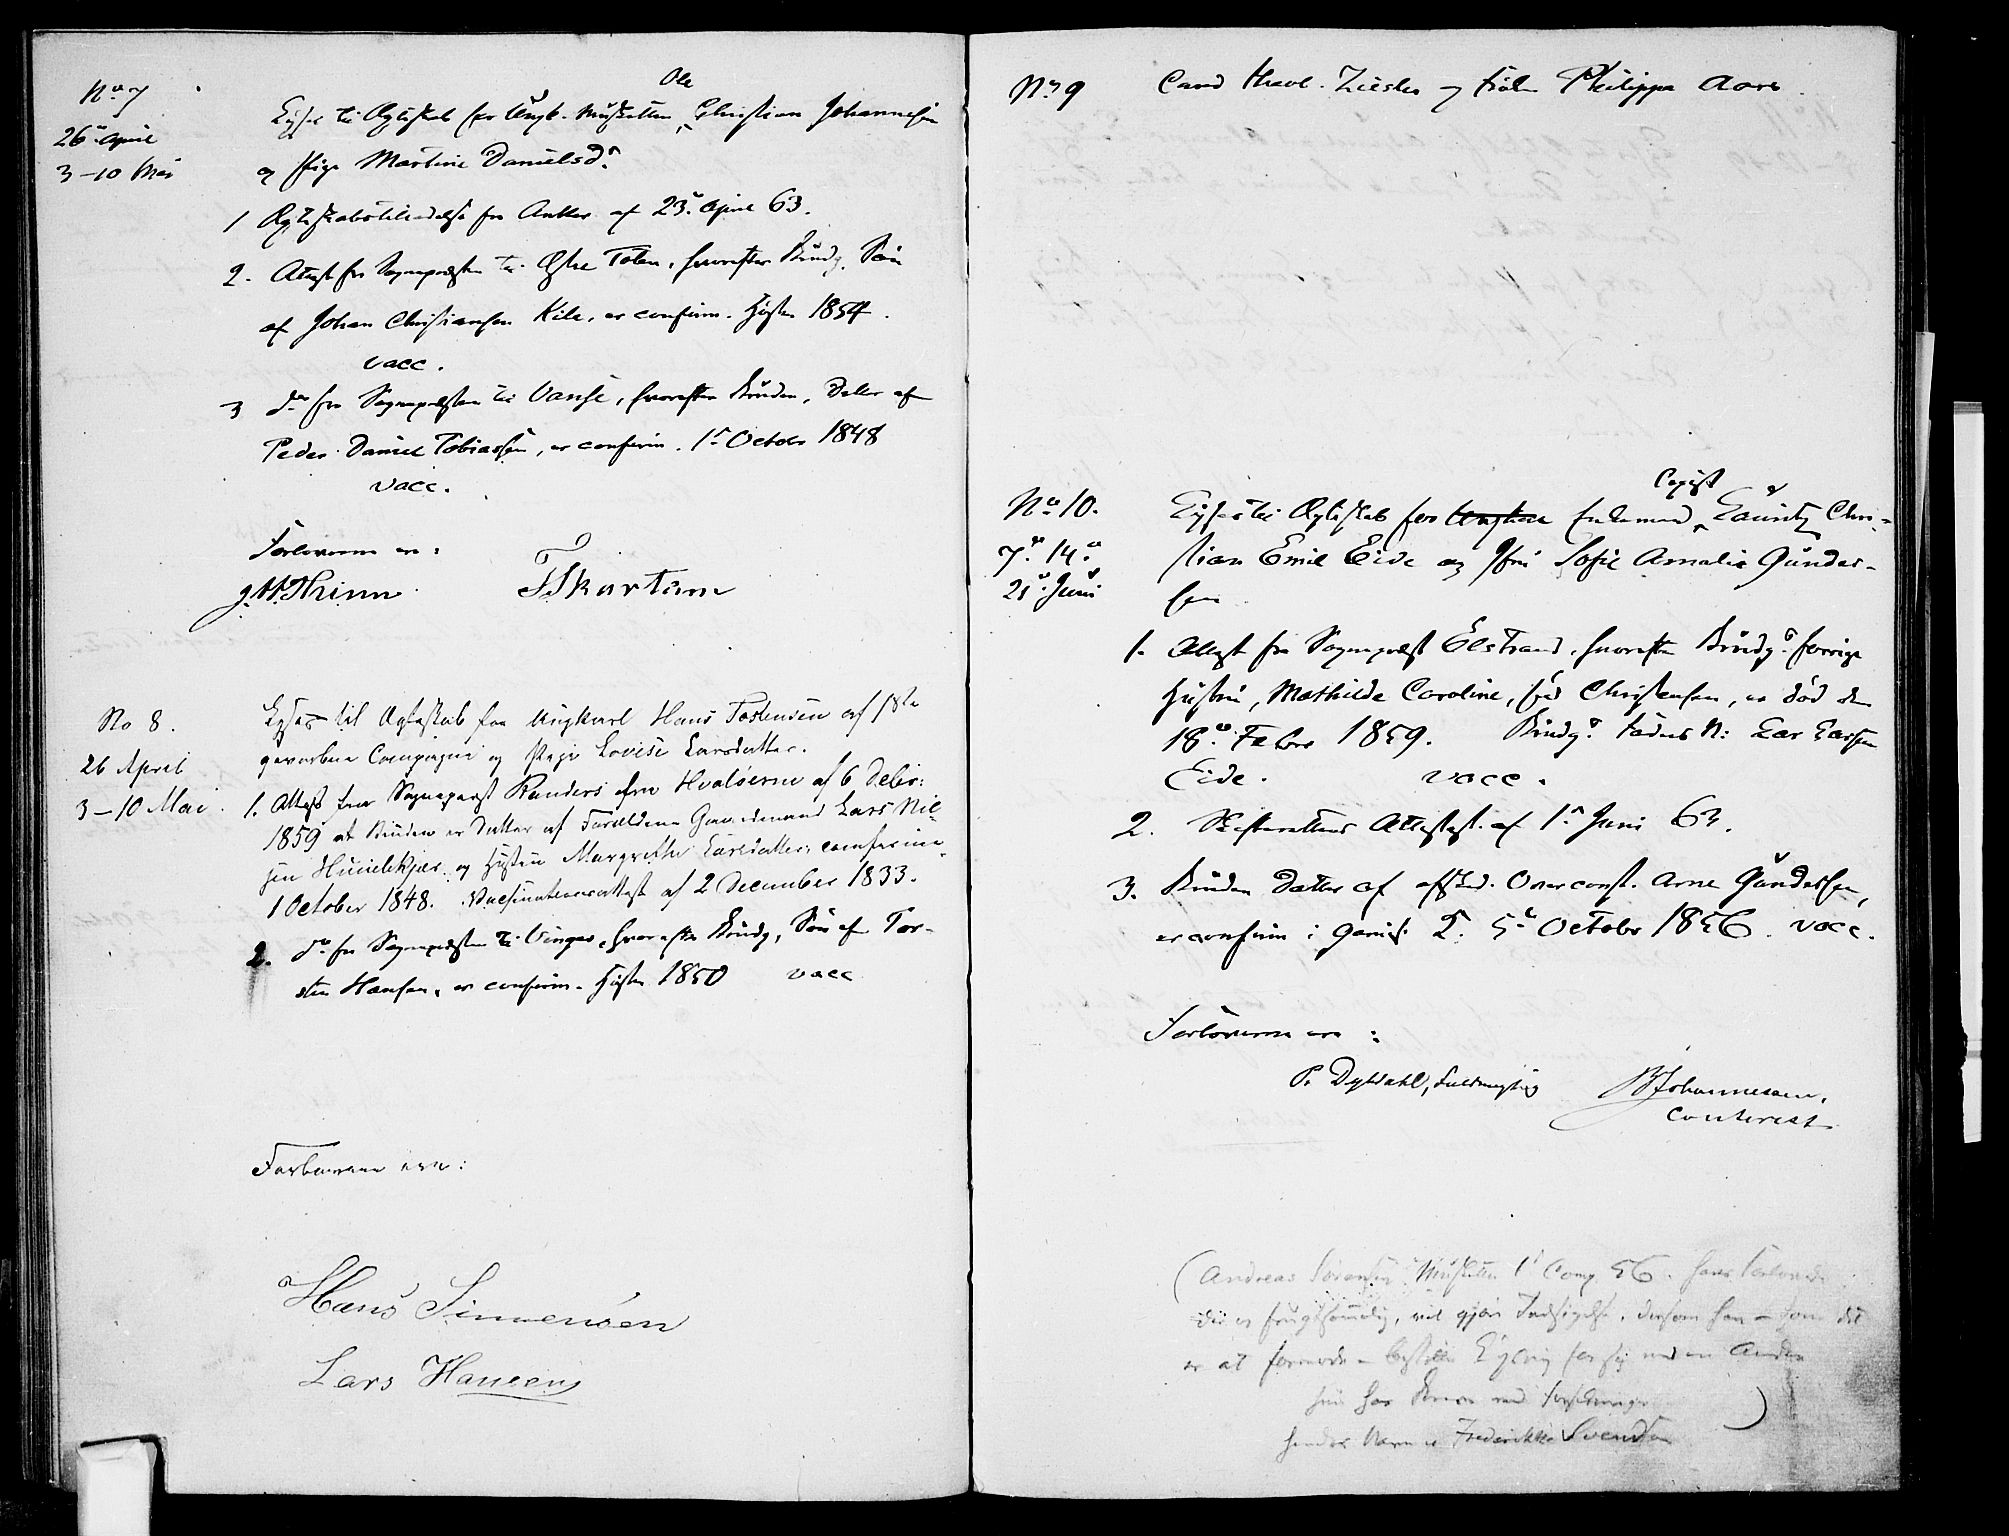 No 7
26 April
3-10 Mai
Ole
Lyses til Ægteskab for Ungk. Musketeer Christian Johannesen
og Pige Martine Danielsdr
1 Ægteskabstilladelse fra Anker af 23 April 63.
2. Attest fra Sognepræsten til Østre Toten, hvorefter Brudg. Søn
af Johan Christiansen Kile, er confirm. Høsten 1854.
vacc.
3 do fra Sognepræsten til Vanse, hvorefter Bruden, Datter af
Peder Daniel Tobiassen, er confirm. 1 Octobr 1848
vacc.
Forloverne ere:
J. W. Thinn TSkartum
No 8.
26 April
3-10 Mai.
Lyses til Ægteskab for Ungkarl Hans Torstensen af 1ste
gevorbne Compagni og Pige Lovise Larsdatter.
1. Attest fra Sognepræst Randers fra Hvaløerne af 6 Debr:
1859 at Bruden er Datter af Forældrene Gaardmand Lars Nil-
sen og Hustru Margrethe Larsdatter; confirme
1 October 1848. Vaccinationsattest af 2 December 1833.
2. do fra Sognepræsten til Vinger, hvorefter Brudg, Søn af Tor-
sten Hansen, er confirm. Høsten 1850 vacc
Forloverne ere:
Hans Simensen
Lars Hansen
No 9 Cand theol. Ziesler og Frøken Philippa Aars.
No 10.
7. 14.
21. Juni
Copist
Lyses til Ægteskab for Ungkarl Enkemand Lauritz Chri-
stian Emil Eide og Jfru Sofie Amalie Gunder-
sen
1. Attest fra Sognepræst Elstrand, hvorefter Brudg. forrige
Hustru, Mathilde Caroline, fød Christensen, er død den
18. Febr 1859. Brudg. Faders N: Lar Larsen
Eide. vacc.
2. Skifterettens Attest af 1 Juni 63.
3. Bruden Datter af afsked. Overconst. Arne Gundersen,
er confirm i Garnis. 5 October 1856. vacc.
Forloverne ere:
P. Dybdahl, Fuldmægtig BJohannessen,
Conterist
(Andreas Sørensen Musketeer 1 Comp. 5 B. hans Forlovede
der er frugtsommelig, vil gjøre Indsigelse, dersom han - som det
er at formode - bestiller Lysning for sig med en Anden
hun har Breve med
hendes Navn er Frederikke Svendsen )